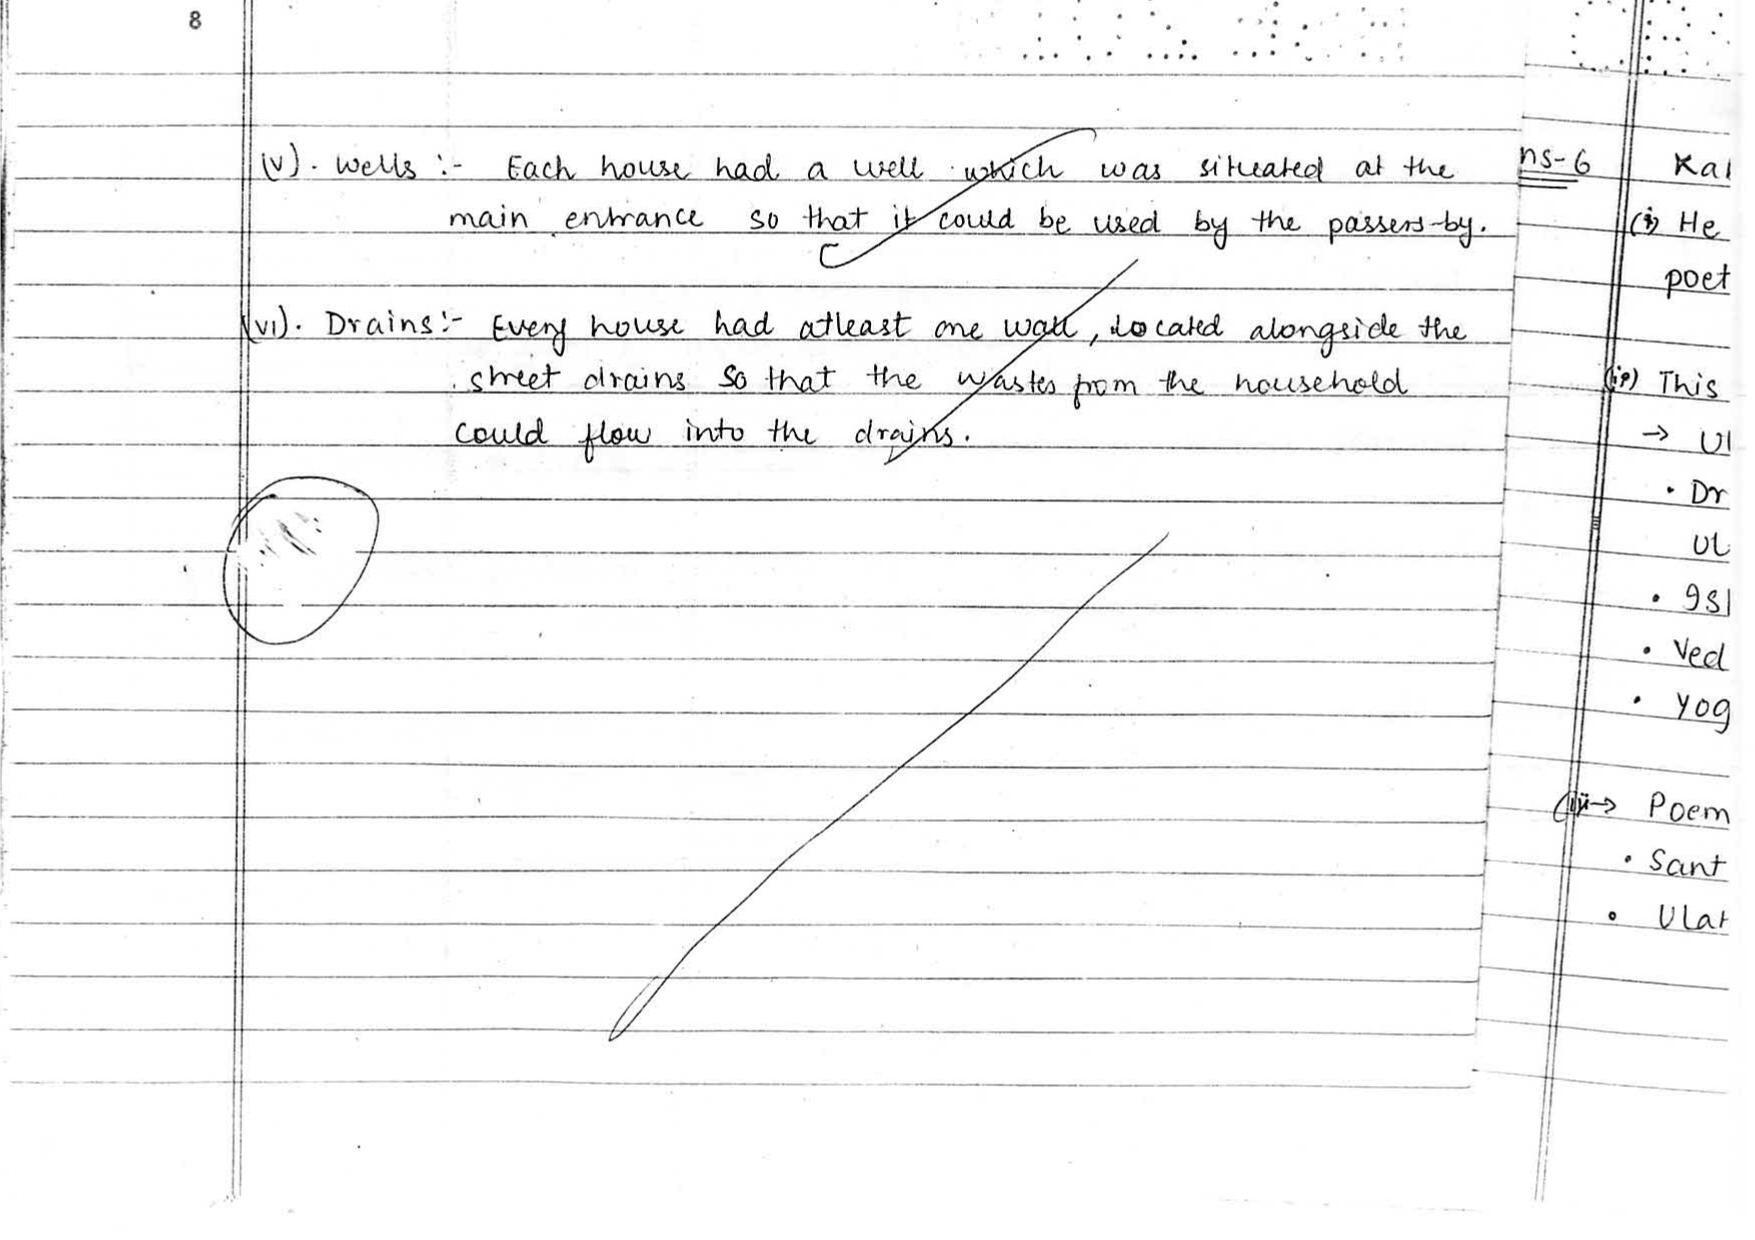 8
(v). Wells :- Each house had a well which was situated at the
main entrance so that it could be used by the passers-by.
(vi). Drains:- Every house had atleast one wall, located alongside the
street drains so that the wastes from the household
could flow into the drains.
ns-6
(i) He
poet
This
→ Ul
• Dr
Ul
• Ved
• Yog
(iii→ Poem
• Sant
• Ulat